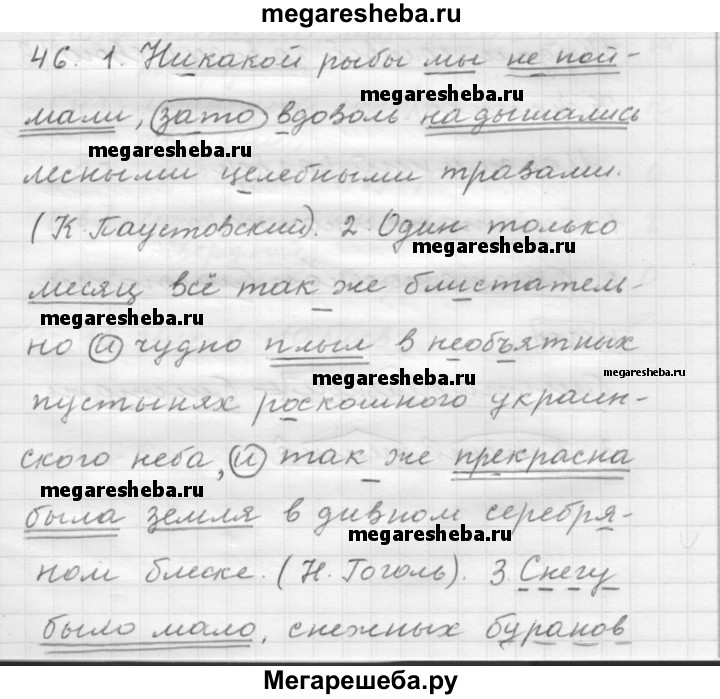 megaresheba.ru
46. 1. Никакой рыбы мы не пой-
megaresheba.ru
мали, зато вдоволь надышались
megaresheba.ru
лесными целебными травами.
(К. Паустовский). 2. Один только
megaresheba.ru
месяц всё так же блистатель-
megaresheba.ru
но и чудно плыл в необъятных
megaresheba.ru
megaresheba.ru
пустынях роскошного украин-
ского неба, и так же прекрасна
megaresheba.ru
была земля в дивном серебря-
megaresheba.ru
ном блеске. (Н. Гоголь). 3. Снегу
было мало, снежных буранов
Мегарешеба.ру